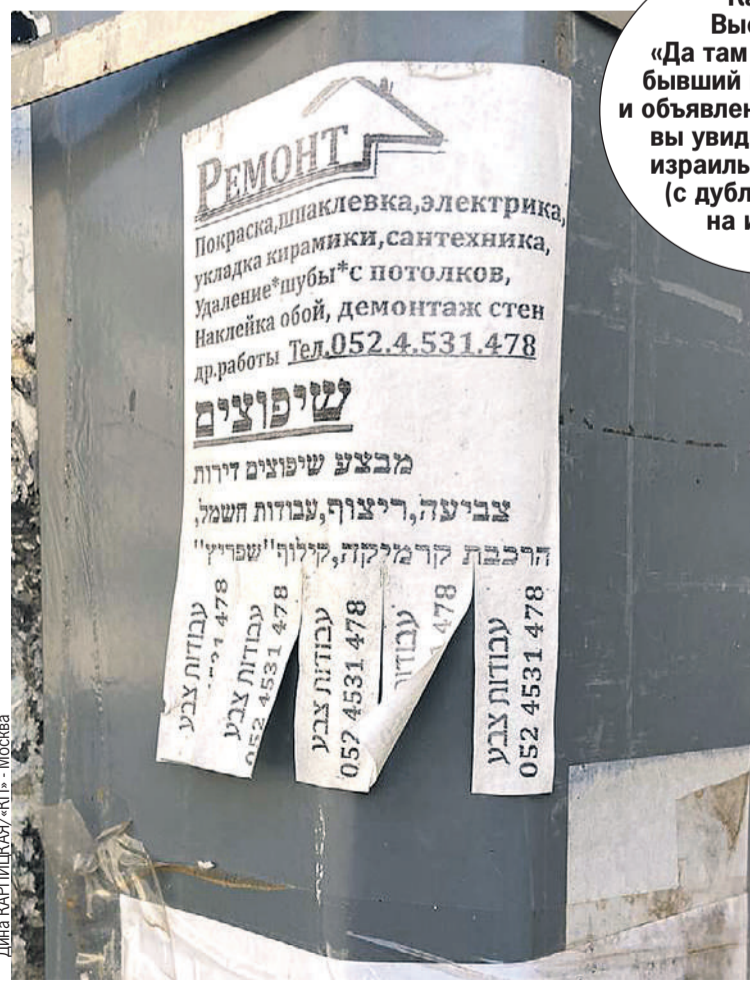 Выс
«Да там
бывший
и объявлен
вы увид
израиль
(с дубл
на и
РЕМОНТ
Покраска,шпаклевка,электрика,
укладка кирамики,сантехника,
Удаление*шубы*с потолков,
Наклейка обой, демонтаж стен
др.работы Тел.052.4.531.478
שיפוצים
מבצע שיפוצים דירות
צביעה,ריצוף,עבודות חשמל,
הרכבת קרמיקה,קילוף"שפריץ"
עבודות צבע
478
עבודות צבע
052 4531 478
עבודות צבע
052 4531 478
478
עבודות צבע
052 4531 478
Дина КАРПИЦКАЯ/«КП» - Москва